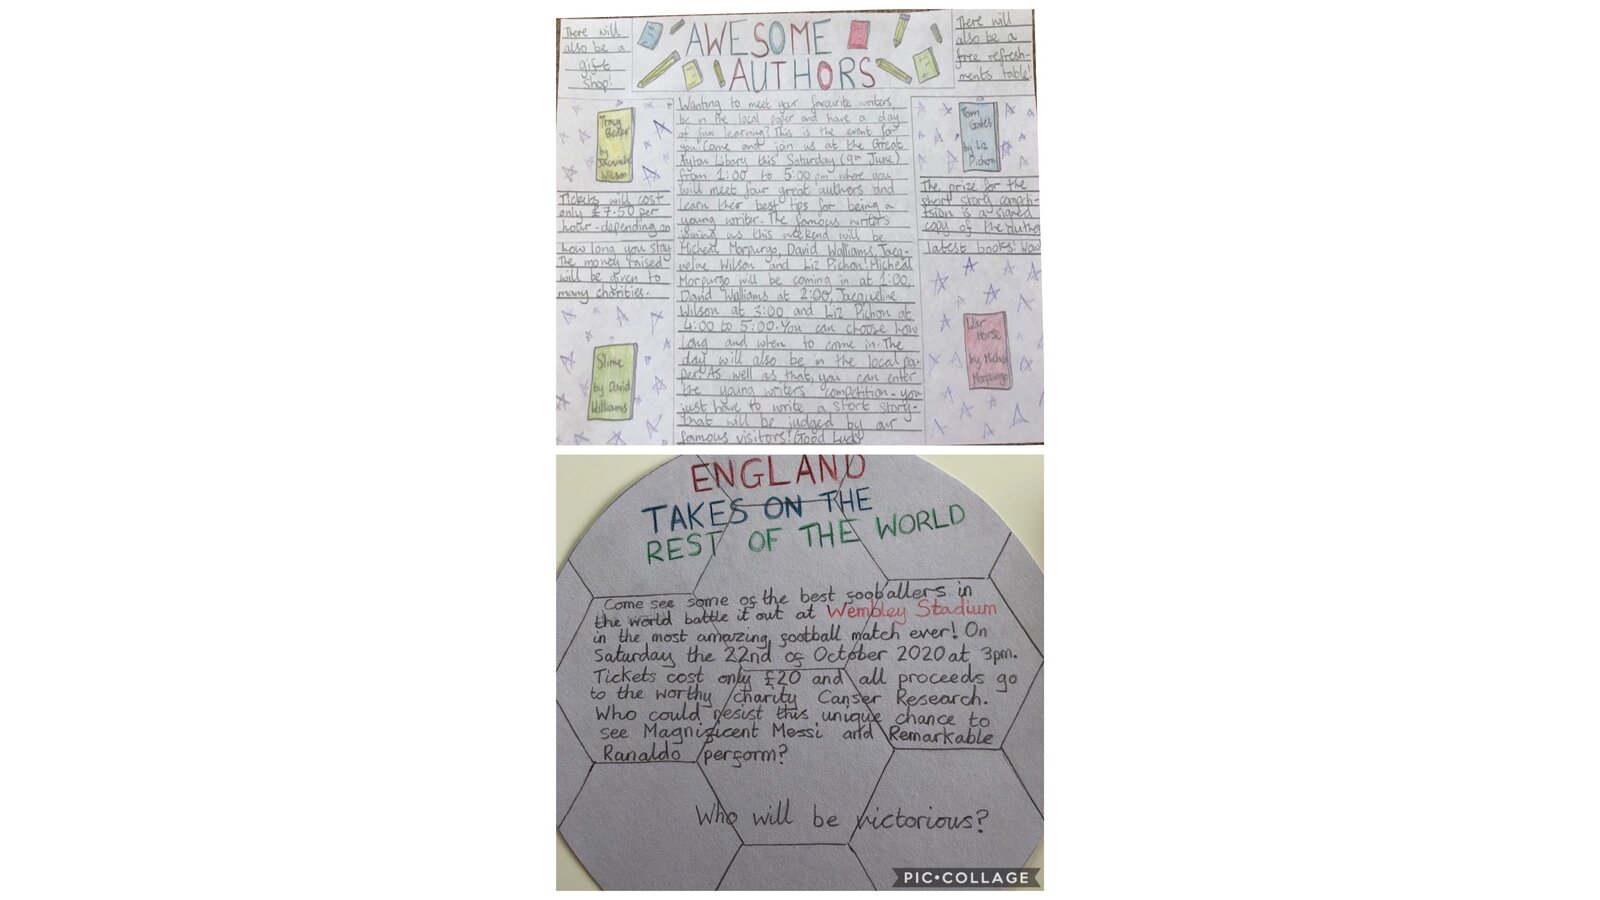 There will
also be a
gift
shop!
AWESOME
AUTHORS
There will
also be a
free refresh-
ments table!
Tracy
Beaker
by
Jacqueline
Wilson
Tickets will cost
only £7.50 per
hour-depending on
how long you stay
The money raised
will be given to
many charities.
Slime
by David
Walliams
Wanting to meet your favourite writers,
be in the local paper and have a day
of fun learning? This is the event for
you! Come and join us at the Great
Ayton Libary this Saturday (9th June)
from 1:00 to 5:00 pm where you
will meet four great authors and
learn their best tips for being a
young writer. The famous writers
joining us this weekend will be
Micheal Morpurgo, David Walliams, Jacq-
ueline Wilson and Liz Pichon! Micheal
Morpurgo will be coming in at 1:00,
David Walliams at 2:00, Jacqueline
Wilson at 3:00 and Liz Pichon at
4:00 to 5:00. You can choose how
long and when to come in. The
day will also be in the local pa-
per. As well as that, you can enter
the young writers competition - you
just have to write a short story -
that will be judged by our
famous visitors! Good Luck
Tom
Gates
by Liz
Pichon
The prize for the
short story competi-
tion is a signed
copy of the Author
latest books! Wow
War
Horse
by Micheal
Morpurgo
ENGLAND
TAKES ON THE
REST OF THE WORLD
Come see some of the best fooballers in
the world battle it out at Wembley Stadium
in the most amazing football match ever! On
Saturday the 22nd of October 2020 at 3pm.
Tickets cost only £20 and all proceeds go
to the worthy charity Canser Research.
Who could resist this unique chance to
see Magnificent Messi and Remarkable
Ranaldo perform?
Who will be victorious?
PIC•COLLAGE